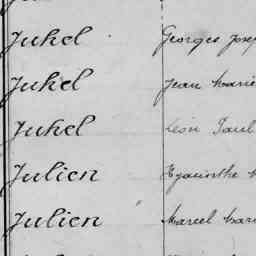 Juhel Georges
Juhel Jean Marie
Juhel Léon Paul
Julien Hyacinthe
Julien Marcel